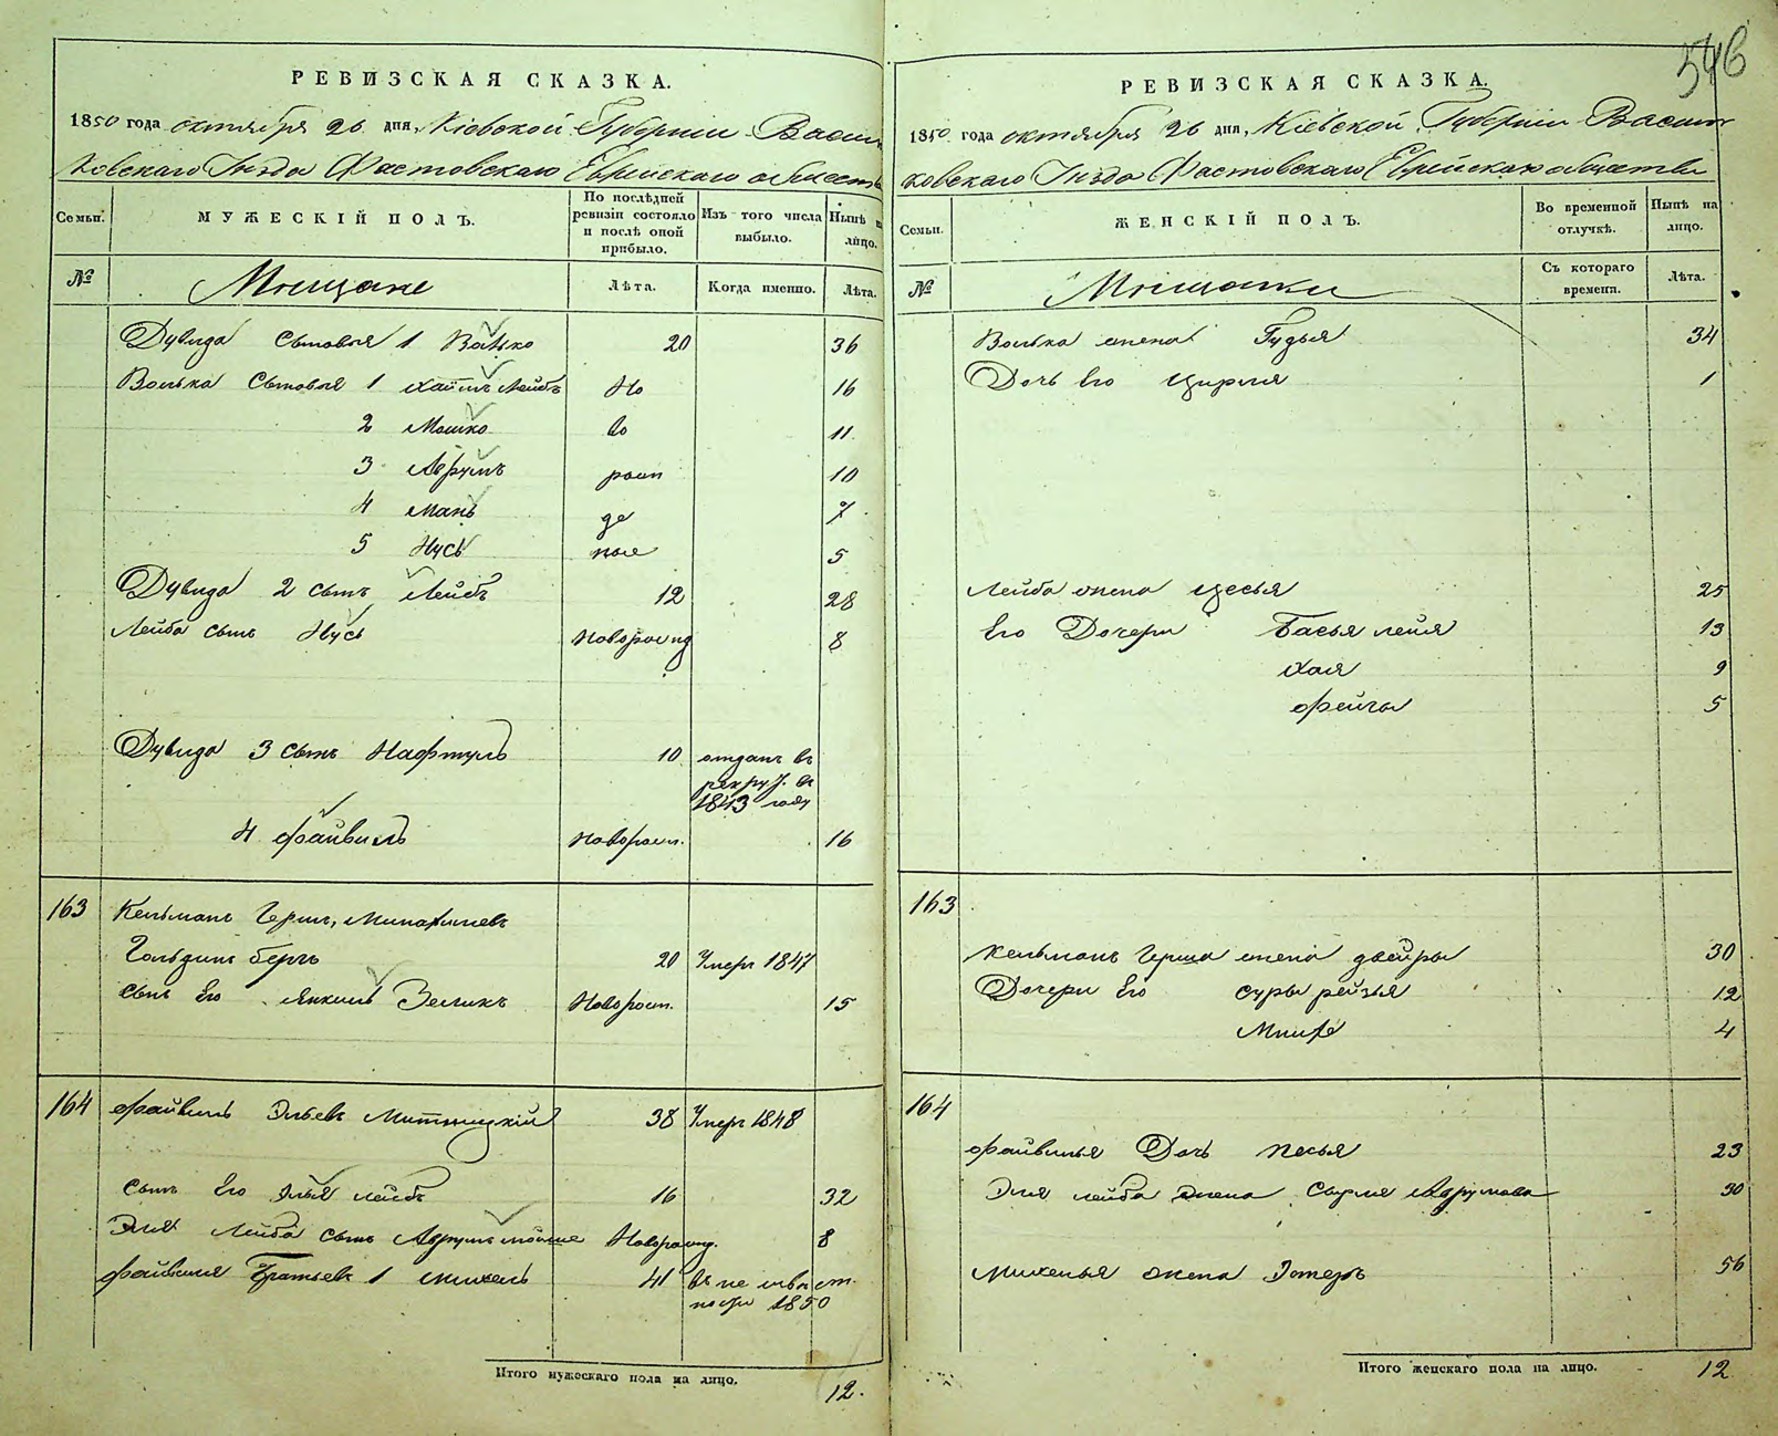 546
РЕВИЗСКАЯ СКАЗКА.
1850 года октября 26 дня, Кіевской Губерніи Васил
ковскаго Уѣзда Фастовскаго Еврейскаго обществ
Семьи. МУЖЕСКІЙ ПОЛЪ. По послѣдней ревизіи состояло и послѣ оной прибыло. Изъ того числа выбыло. Нынѣ на лицо.
№ Мѣщане Лѣта. Когда именно. Лѣта.
Дувида сыновья 1 Волько 20 36
Волька Сыновья 1 Хаимъ Лейбъ Но 16
2 Мошко во 11
3 Аврумъ рожд 10
4 Мань де 7
5 Нусь ные 5
Дувида 2 сынъ Лейбъ 12 28
Лейба сынъ Нусь Новорожд 8
Дувида 3 сынъ Нафтуль 10 отданъ въ
рекрут. въ
1843 году
4 Файвиль Новорожд. 16
163 Кельманъ Гершъ, Минахимевъ
Гольдинъ бергъ 20 Умеръ 1847
сынъ Его Янкель Зеликъ Новорожд. 15
164 Файвиль Эльевъ Митницкій 38 Умеръ 1848
Сынъ Его Элья лейбъ 16 32
Эля Лейба сынъ Аврумъ мойше Новорожд. 8
Файвиля Братьевъ 1 Михель 41 въ не извѣст.
ности 1850
Итого мужескаго пола на лицо. 12.
РЕВИЗСКАЯ СКАЗКА.
1850 года октября 26 дня, Кіевской Губерніи Васил
ковскаго Уѣзда Фастовскаго Еврейскаго общества
Семьи. ЖЕНСКІЙ ПОЛЪ. Во временной отлучкѣ. Нынѣ на лицо.
№ Мѣщанки Съ котораго времени. Лѣта.
Волька жена Гудья 34
Дочь Его Цирля 1
Лейба жена Цесья 25
Его Дочери Басья лейя 13
Хая 9
Фейга 5
163
Кельманъ Герша жена двейра 30
Дочери Его Сура рейзя 12
Мінде 4
164
Файвилья Дочь Песья 23
Эля лейба жена Сырля Аврумова 30
Михелья жена Эстеръ 56
Итого женскаго пола на лицо. 12